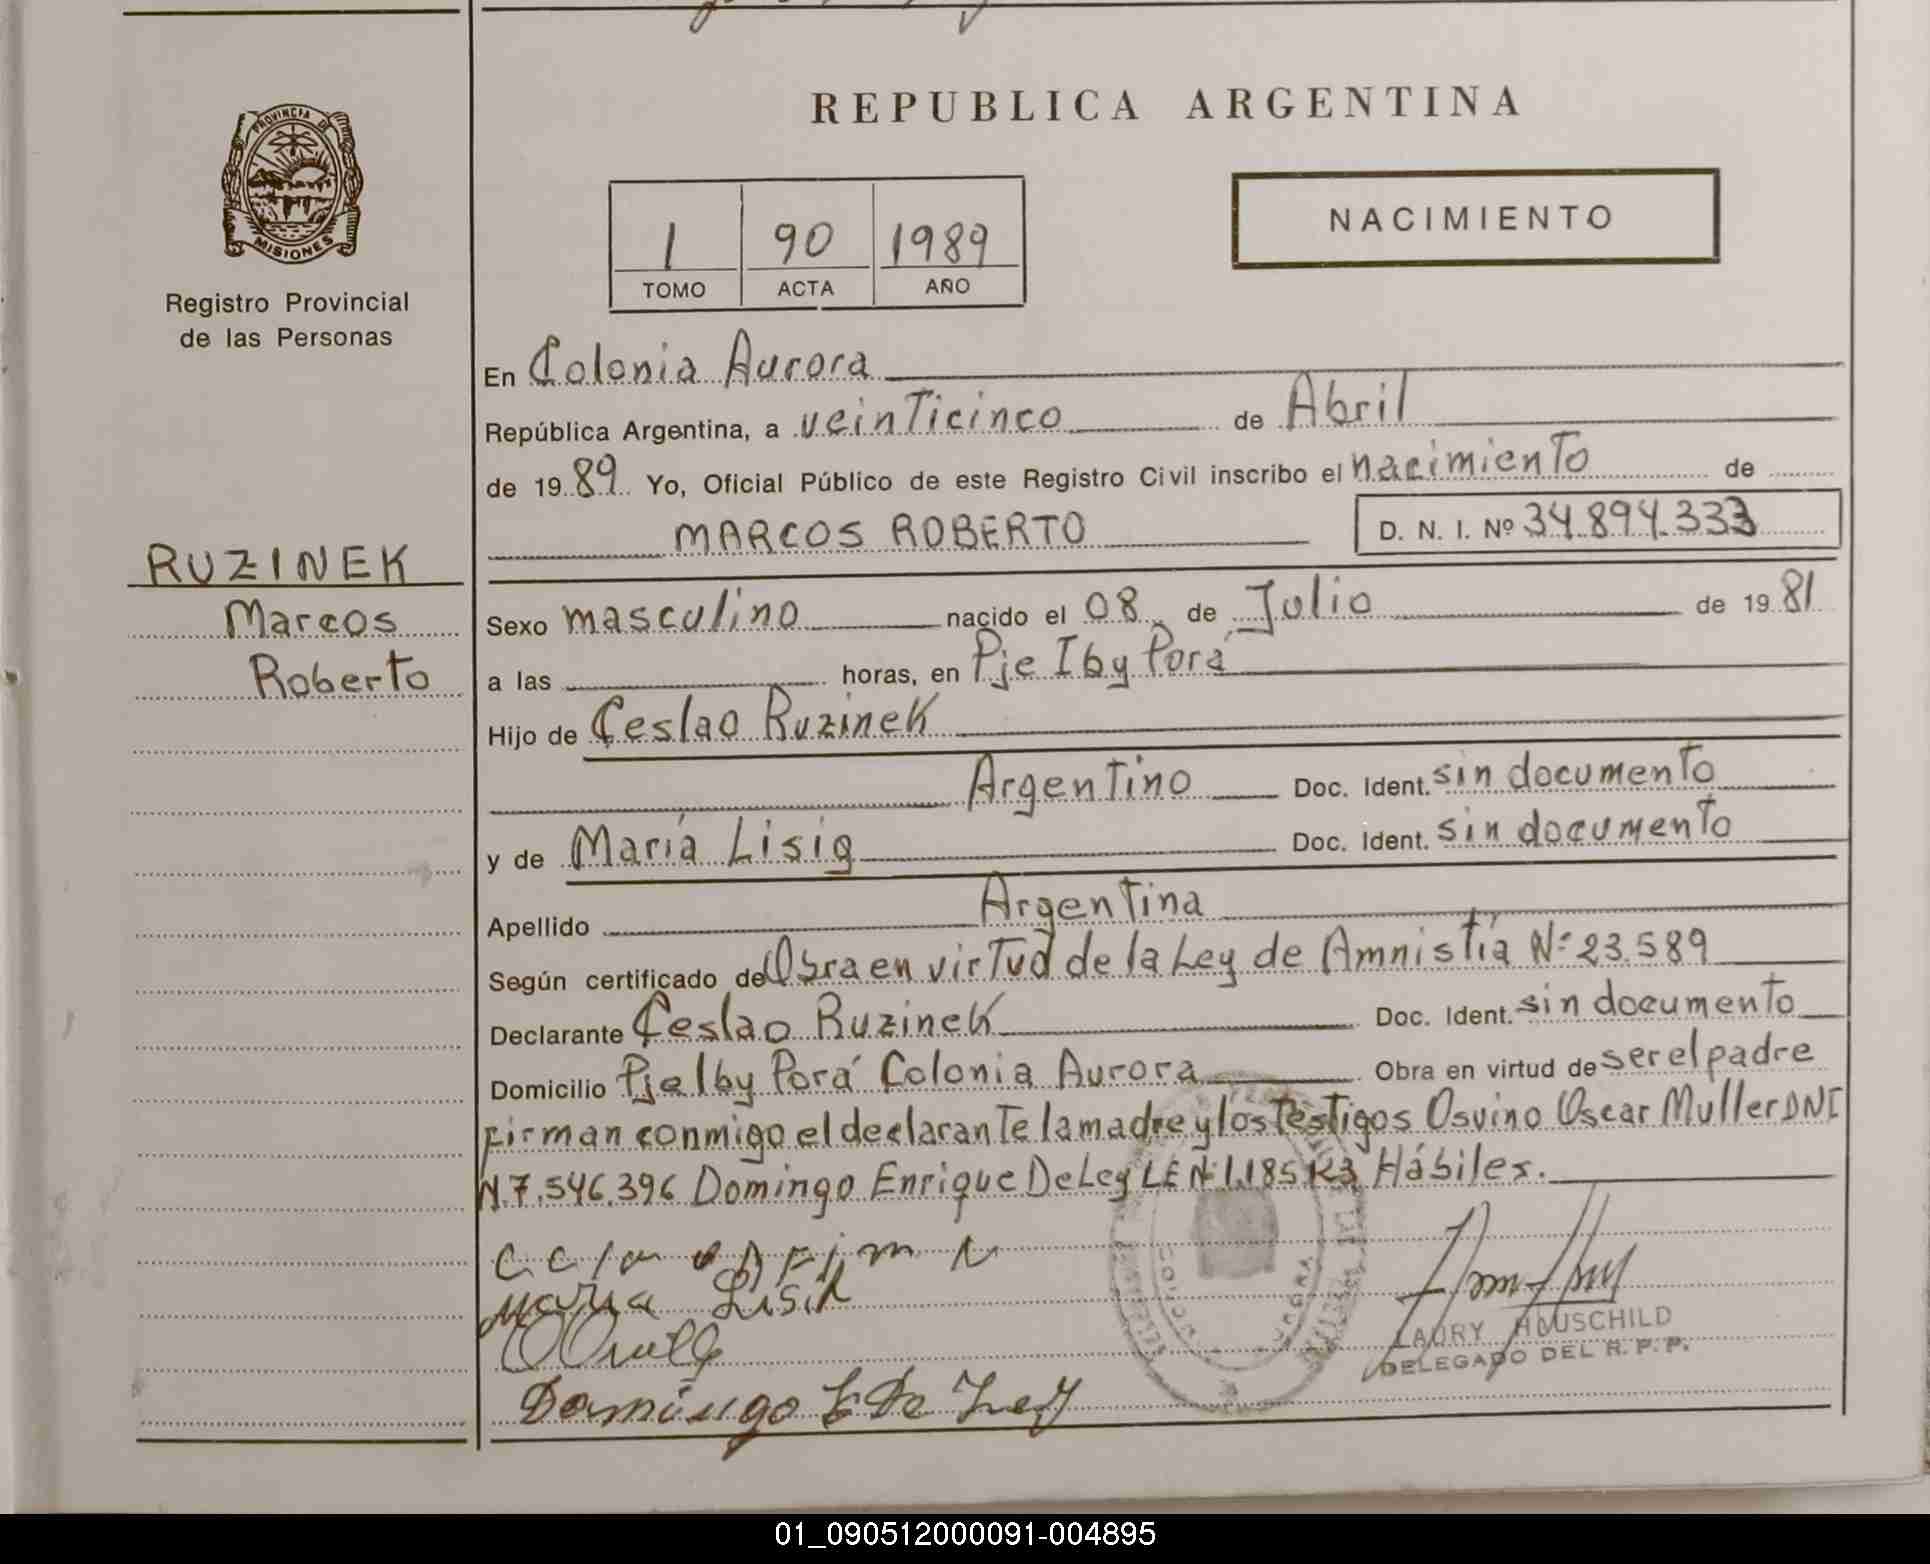 REPUBLICA ARGENTINA
PROVINCIA DE
MISIONES
Registro Provincial
de las Personas
1 90 1989
TOMO ACTA AÑO
NACIMIENTO
En Colonia Aurora
República Argentina, a veinticinco de Abril
de 1989 Yo, Oficial Público de este Registro Civil inscribo el nacimiento de
MARCOS ROBERTO D. N. I. Nº 34.894.333
RUZINEK
Marcos
Roberto
Sexo masculino nacido el 08 de Julio de 1981
a las horas, en Pje Iby Porá
Hijo de Ceslao Ruzinek
Argentino Doc. Ident. sin documento
y de María Lisig Doc. Ident. sin documento
Apellido Argentina
Según certificado de Obra en virtud de la Ley de Amnistía Nº 23.589
Declarante Ceslao Ruzinek Doc. Ident. sin documento
Domicilio Pje Iby Porá Colonia Aurora Obra en virtud de ser el padre
Firman conmigo el declarante la madre y los testigos Osvino Oscar Muller DNI
N.7.546.396 Domingo Enrique De Ley LE Nº 1.185 Hábiles.
María Lisik
Domingo E De Ley
LAURY HOUSCHILD
DELEGADO DEL R. P. P.
01_090512000091-004895